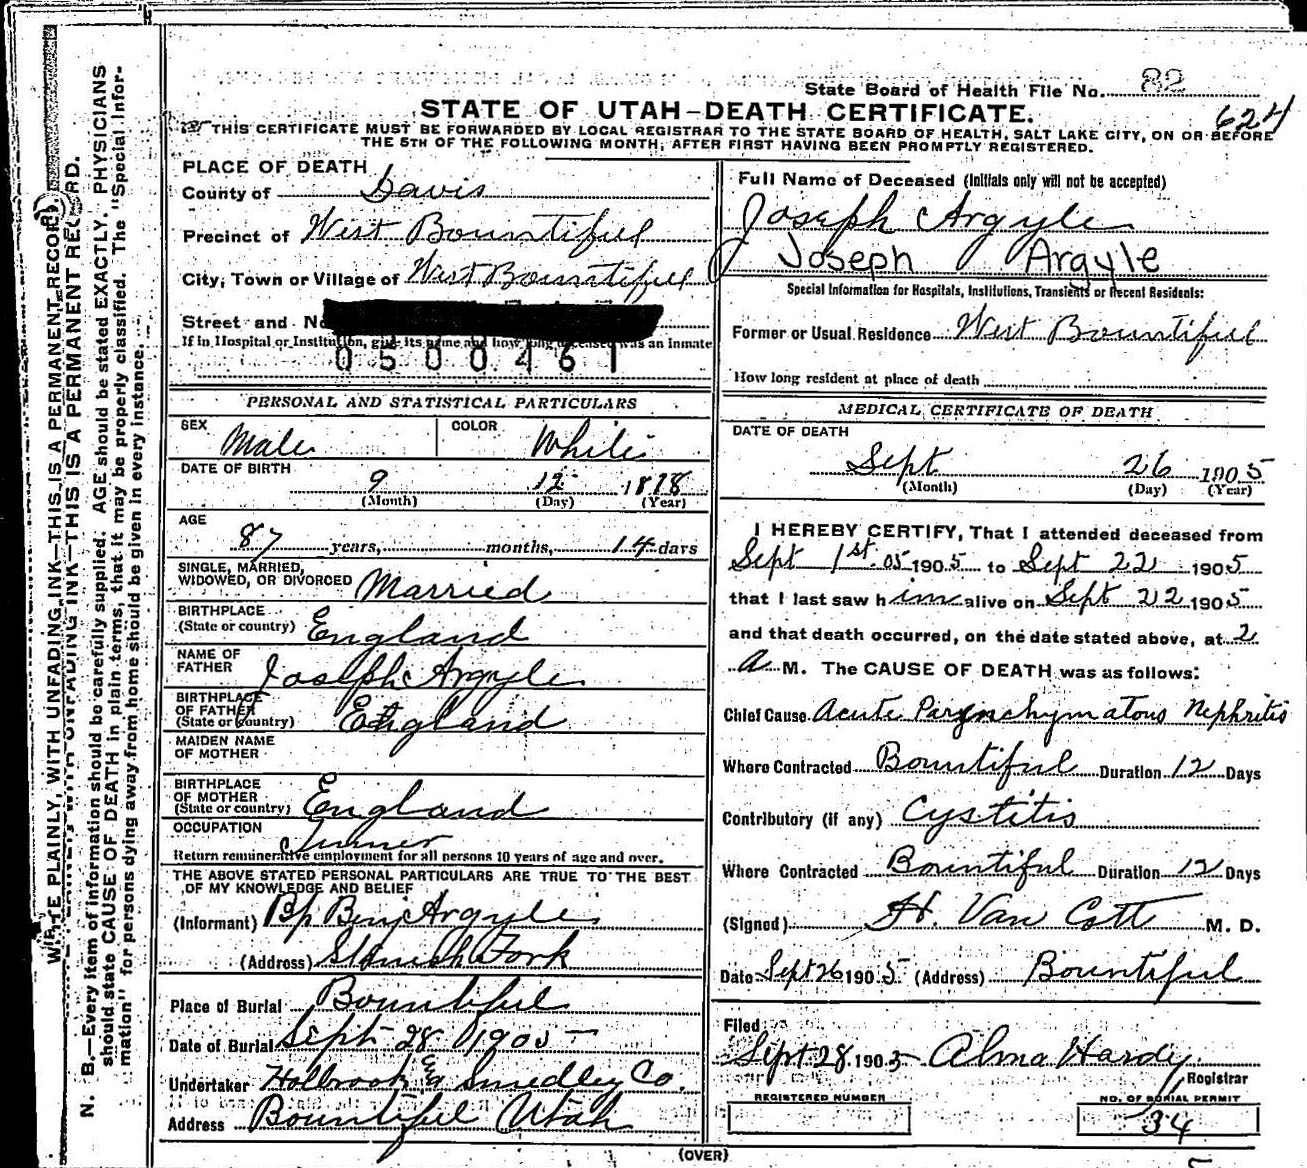 State Board of Health File No. 82
624
STATE OF UTAH—DEATH CERTIFICATE.
THIS CERTIFICATE MUST BE FORWARDED BY LOCAL REGISTRAR TO THE STATE BOARD OF HEALTH, SALT LAKE CITY, ON OR BEFORE
THE 5TH OF THE FOLLOWING MONTH, AFTER FIRST HAVING BEEN PROMPTLY REGISTERED.
WRITE PLAINLY, WITH UNFADING INK—THIS IS A PERMANENT RECORD.
THIS IS A PERMANENT RECORD.
N. B.—Every item of information should be carefully supplied. AGE should be stated EXACTLY. PHYSICIANS
should state CAUSE OF DEATH in plain terms, that it may be properly classified. The "Special Infor-
mation" for persons dying away from home should be given in every instance.
PLACE OF DEATH
County of Davis
Precinct of West Bountiful
City, Town or Village of West Bountiful
Street and No
If in Hospital or Institution, give its name and how long deceased was an inmate
0500461
PERSONAL AND STATISTICAL PARTICULARS
SEX Male COLOR White
DATE OF BIRTH
9 12 1818
(Month) (Day) (Year)
AGE
87 years, months, 14 days
SINGLE, MARRIED,
WIDOWED, OR DIVORCED Married
BIRTHPLACE
(State or country) England
NAME OF
FATHER Joseph Argyle
BIRTHPLACE
OF FATHER
(State or country) England
MAIDEN NAME
OF MOTHER
BIRTHPLACE
OF MOTHER
(State or country) England
OCCUPATION
Return remunerative employment for all persons 10 years of age and over.
THE ABOVE STATED PERSONAL PARTICULARS ARE TRUE TO THE BEST
OF MY KNOWLEDGE AND BELIEF
(Informant) Bp Benj Argyle
(Address) Spanish Fork
Place of Burial Bountiful
Date of Burial Sept 28 1905
Undertaker Holbrook & Smedley Co.
Address Bountiful Utah
Full Name of Deceased (Initials only will not be accepted)
Joseph Argyle
Joseph Argyle
Special Information for Hospitals, Institutions, Transients or Recent Residents:
Former or Usual Residence West Bountiful
How long resident at place of death
MEDICAL CERTIFICATE OF DEATH
DATE OF DEATH
Sept 26 1905
(Month) (Day) (Year)
I HEREBY CERTIFY, That I attended deceased from
Sept 1st 05 1905 to Sept 22 1905
that I last saw h im alive on Sept 22 1905
and that death occurred, on the date stated above, at 2
A M. The CAUSE OF DEATH was as follows:
Chief Cause Acute Parynchymatous Nephritis
Where Contracted Bountiful Duration 12 Days
Contributory (if any) Cystitis
Where Contracted Bountiful Duration 12 Days
(Signed) H. Van Cott M. D.
Date Sept 26 1905 (Address) Bountiful
Filed
Sept 28 1905 Alma Hardy
Registrar
REGISTERED NUMBER
NO. OF BURIAL PERMIT
34
(OVER)